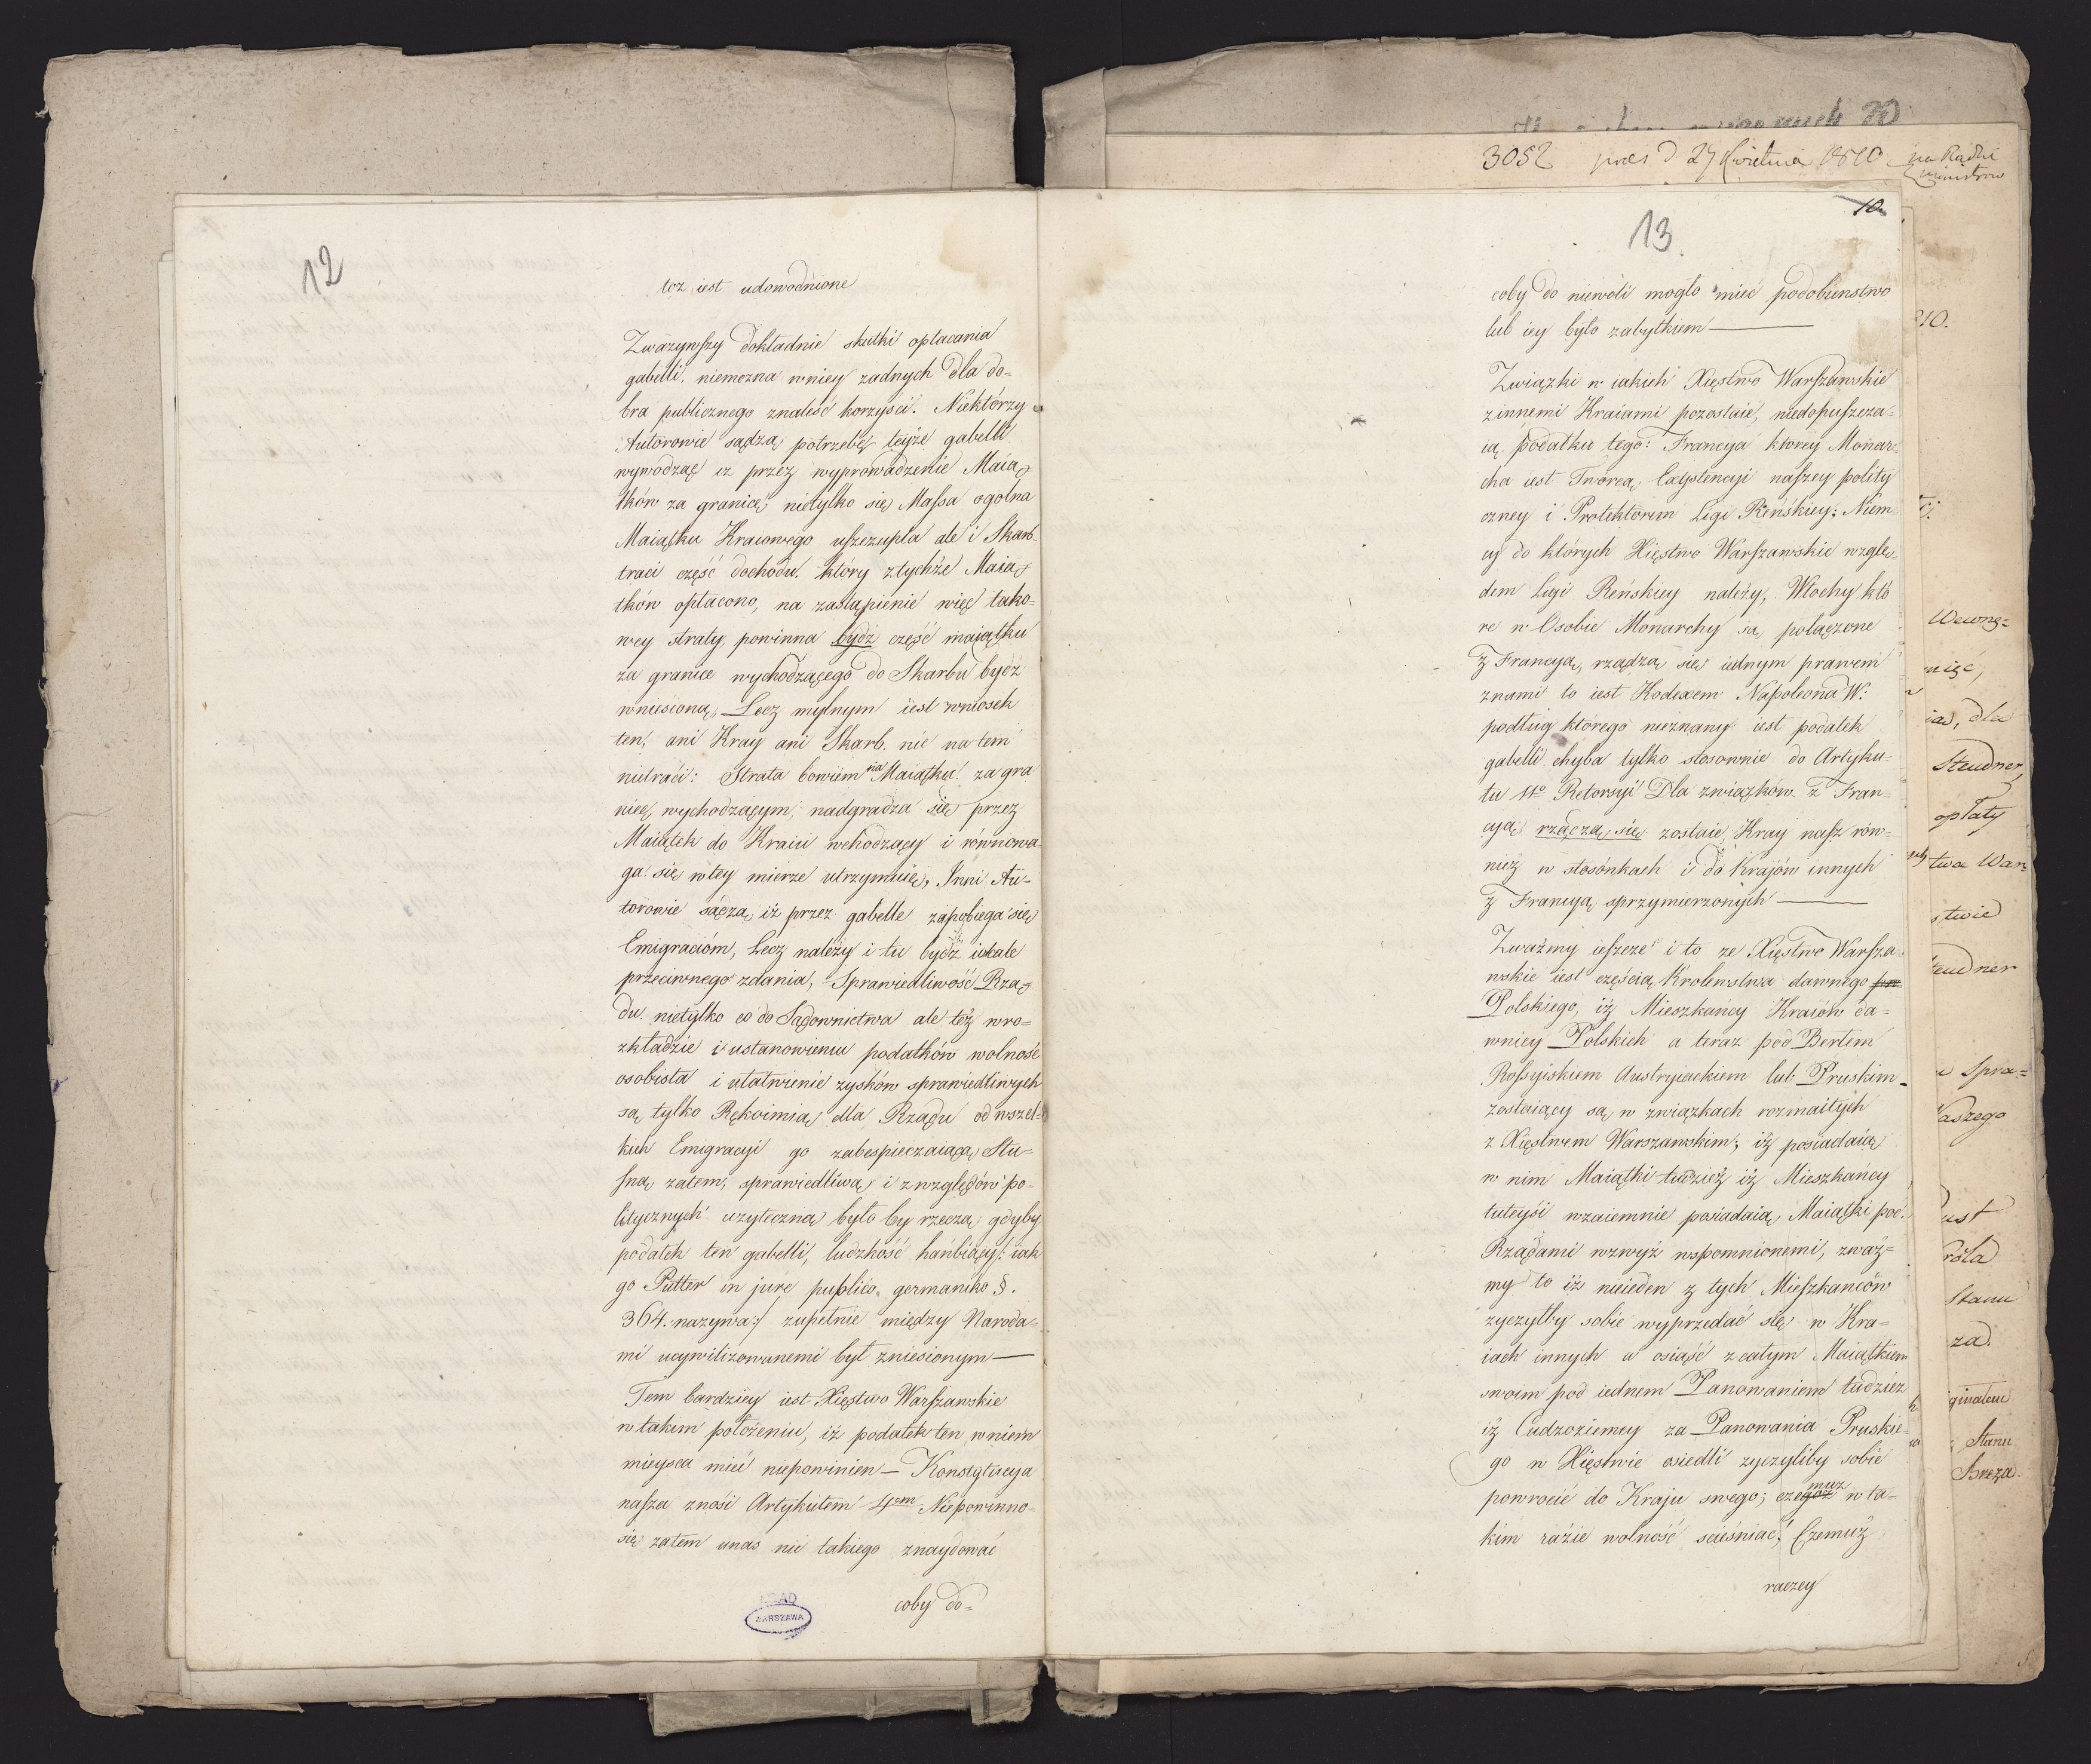 12
toz iest udowodnione
Zwazywszy dokładnie skutki opłacania
gabelli, niemozna w niey zadnych dla do=
bra publicznego znaleść korzyści. Niektórzy
Autorowie sądzą potrzebę teyże gabelli
wywodząc iz przez wyprowadzenie Maią=
tków za granicę nietylko się Massa ogolna
Maiątku Kraiowego uszczupla ale i Skarb
traci część dochodu który z tychże Maią=
tków opłacono, na zastąpienie więc tako=
wey straty, powinna bydź część maiątku
za granice wychodzącego do Skarbu bydź
wniesioną, Lecz mylnym iest wniosek
ten, ani Kray ani Skarb nic na tem
nietraci: Strata bowiem na Maiątku za gra
nicę wychodzącym, nadgradza się przez
Maiątek do Kraiu wchodzący i równowa=
ga się w tey mierze utrzymuie, Inni Au=
torowie sądzą iż przez gabelle zapobiega się
Emigraciom, Lecz należy i tu bydź wcale
przeciwnego zdania, Sprawiedliwość Rzą=
du nietylko co do Sądownictwa ale też w ro=
zkładzie i ustanowieniu podatków wolność
osobista i ułatwienie zysków sprawiedliwych
są tylko Rękoimią dla Rządu od wszel=
kich Emigracyi go zabespieczaiącą Słu=
szną zatem, sprawiedliwą i z względów po=
litycznych uzyteczną było by rzeczą gdyby
podatek ten gabelli, ludzkość hańbiący /: iak
go Putter in jure publico germaniko §.
364. nazywa :/ zupełnie między Naroda=
mi ucywilizowanemi był zniesionym —
Tem bardziey iest Xięstwo Warszawskie
w takim położeniu, iż podatek ten w niem
mieysca mieć niepowinien — Konstytucya
nasza znosi Artykułem 4em Niepowinno
się zatem u nas nic takiego znaydować
coby do=
WARSZAWA
3052 pres d 27 Kwietnia 1810 na Radzie
Ministrow
10
13
coby do niewoli mogło mieć podobieństwo
lub iey było zabytkiem —
Związki w iakich Xięstwo Warszawskie
z innemi Kraiami pozostaie, niedopuszcza=
ią podatku tego: Francya ktorey Monar=
cha iest Twórcą Exystencyi naszey polity
czney i Protektorem Ligi Reńskiey: Niem
cy do których Xięstwo Warszawskie wzglę=
dem Ligi Reńskiey należy, Włochy któ
re w Osobie Monarchy są połączone
z Francyą, rządzą się iednym prawem
z nami to iest Kodexem Napoleona W:
podług którego nieznany iest podatek
gabelli chyba tylko stosownie do Artyku=
łu 11o Retorsyi Dla związków z Fran=
cyą rzączą się zostaie Kray nasz rów=
nież w stosónkach i do Krajów innych
z Francyą sprzymierzonych —
Zważmy ieszcze i to ze Xięstwo Warsza=
wskie iest częścią Krolewstwa dawnego
Polskiego, iż Mieszkańcy Kraiów da=
wniey Polskich a teraz pod Berłem
Rossyiskiem Austryiackiem lub Pruskim
zostaiący są w związkach rozmaitych
z Xięstwem Warszawskim; iż posiadaią
w nim Maiątki tudzież iż Mieszkańcy
tuteysi wzaiemnie posiadaią Maiątki pod
Rządami wzwyż wspomnionemi, zważ=
my to iż nieieden z tych Mieszkanców
zyczyłby sobie wyprzedać się w Kra=
iach innych a osiąść z całym Maiątkiem
swoim pod iednem Panowaniem tudziez
iż Cudzoziemcy za Panowania Pruskie=
go w Xięstwie osiedli zyczyliby sobie
powrocić do Kraju swego; czegoż muz w ta=
kim razie wolność scieśniać; Czemuż
raczey
210.
Wewnę=
nięć,
ia, dla
Steudner,
opłaty
twa War=
stwie
teudner
Spra=
aszego
ust
róla
Stanu
za
ginałem
Stanu
Breza